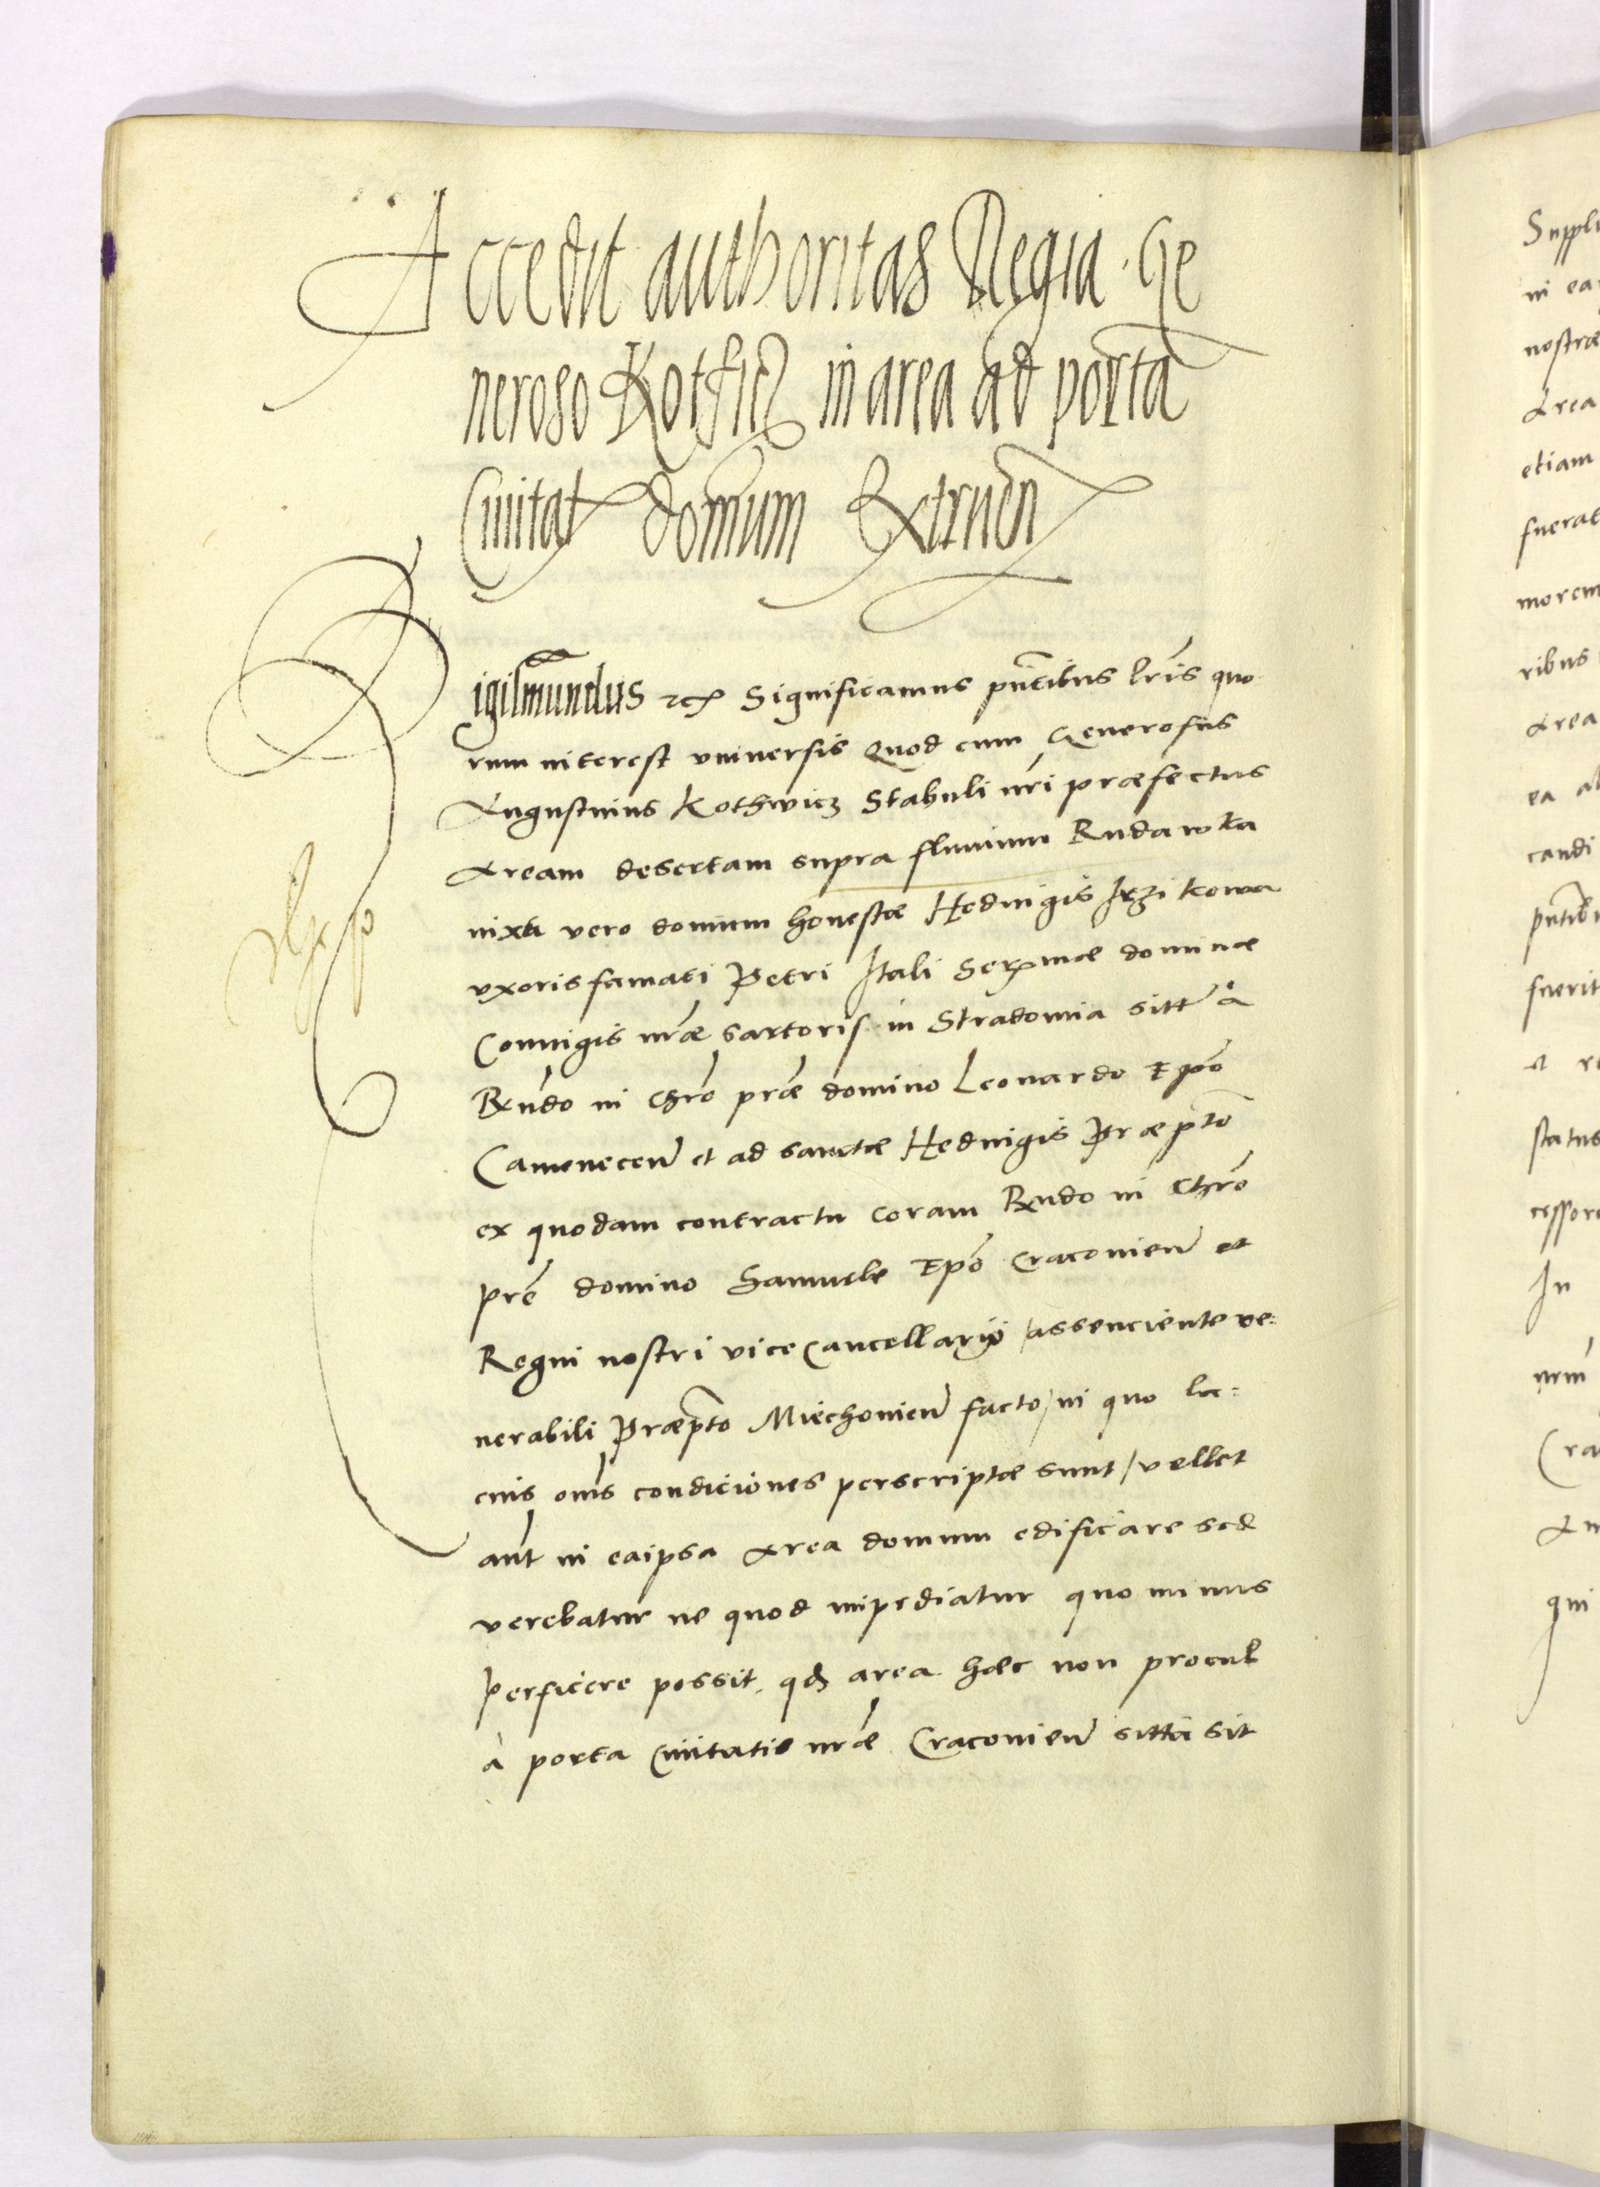 Accedit authoritas Regia Ge
neroso Kotficz in area ad porta
Civitat domum Extruen
Sigismundus etc Significamus pntibus lris quo
rum interest vniversis Quod cum Generosus
Augustinus Kothwicz Stabuli nri præfectus
Aream desertam supra fluvium Rudawka
iuxta vero domum honestæ Heduigis Irzikowa
vxoris famati Petri Itali Sermæ dominæ
Coniugis nræ sartoris in Stradomia sitt à
Rndo in Chro præ domino Leonardo Epo
Camenecen et ad sanctæ Heduigis Præpto
ex quodam contractu coram Rndo in Chro
pre domino Samuele Epo Cracovien et
Regni nostri vice Cancellarij / assenciente ve:
nerabili Præpto Miechovien facto / in quo la:
cius oms condiciones perscriptæ sunt / vellet
aut in eaipsa Area domum edificare sed
verebatur ne quod impediatur quo minus
perficere possit, qd area hæc non procul
à porta Civitatis nræ Cracovien sitta sit
Suppli
ni ea
nostræ
Area
etiam
fuerat
morem
ribus
Area
ea al
candi
pntibu
fuerit
et re
status
cessore
In
nrm
Cra
An
qui